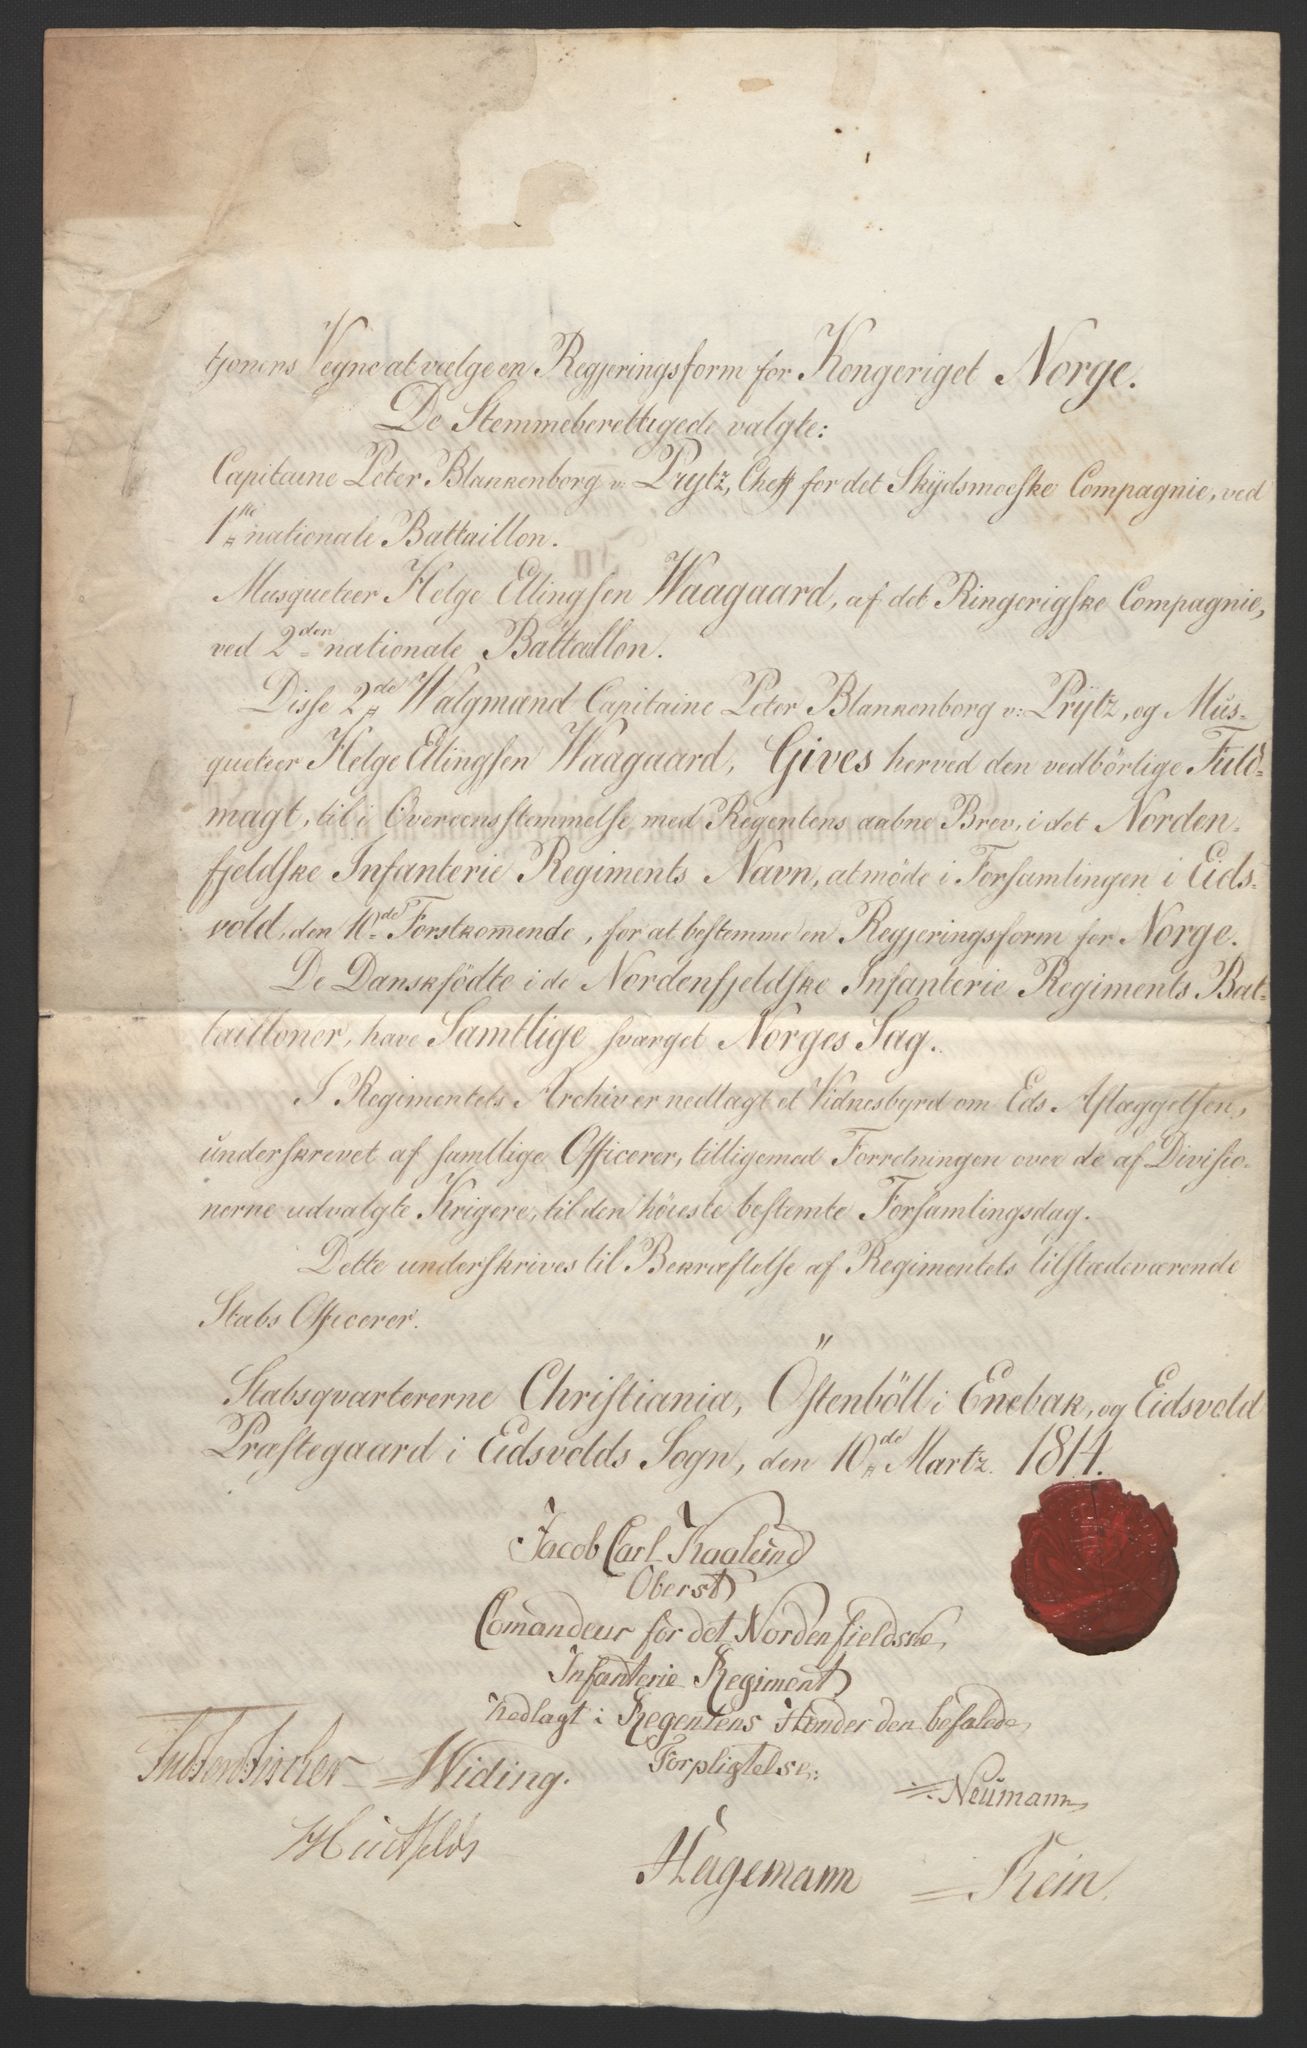 tjonens Vegne at vælge en Regjeringsform for Kongeriget Norge.
De Stemmeberettigede valgte:
Capitaine Peter Blankenborg v: Prÿtz, Cheff for det Skÿdsmoeske Compagnie, ved
1ste nationale Battaillon.
Musqueteer Helge Ellingsen Waagaard, af det Ringerigske Compagnie,
ved 2den nationale Battallon.
Disse 2de Valgmænd Capitaine Peter Blankenborg v: Prÿtz, og Mus-
queteer Helge Ellingsen Waagaard, Gives herved den vedbörlige Fuld-
magt, til i Overeensstemmelse med Regentens aabne Brev, i det Norden-
fjeldske Infanterie Regiments Navn, at möde i Forsamlingen i Eids-
vold, den 10de Förstkomende, for at bestemme en Regjeringsform for Norge.
De Danskfödte i de Nordenfjeldske Infanterie Regiments Bat-
tailloner, have Samtlige sværget Norges Sag.
I Regimentets Archiv er nedlagt et Vidnesbyrd om Eds Aflæggelsen,
underskrevet af samtlige Officerer, tilligemed Forretningen over de af Divisio-
nerne udvalgte Krigere, til den höieste bestemte Forsamlingsdag.
Dette underskrives til Bekræftelse af Regimentets tilstædeværende
Stabs Officerer.
Stabsqvartererne Christiania, Östenböll i Enebak, og Eidsvold
Præstegaard i Eidsvolds Sogn, den 10de Martz 1814.
Jacob Carl Haglund
Oberst
Comandeur for det Nordenfieldske
Infanterie Regiment
Nedlagt i Regentens Hænder den befalede
Forpligtelse:
Widing.
Neumann
Huitfeldt
Hagemann
Rein.